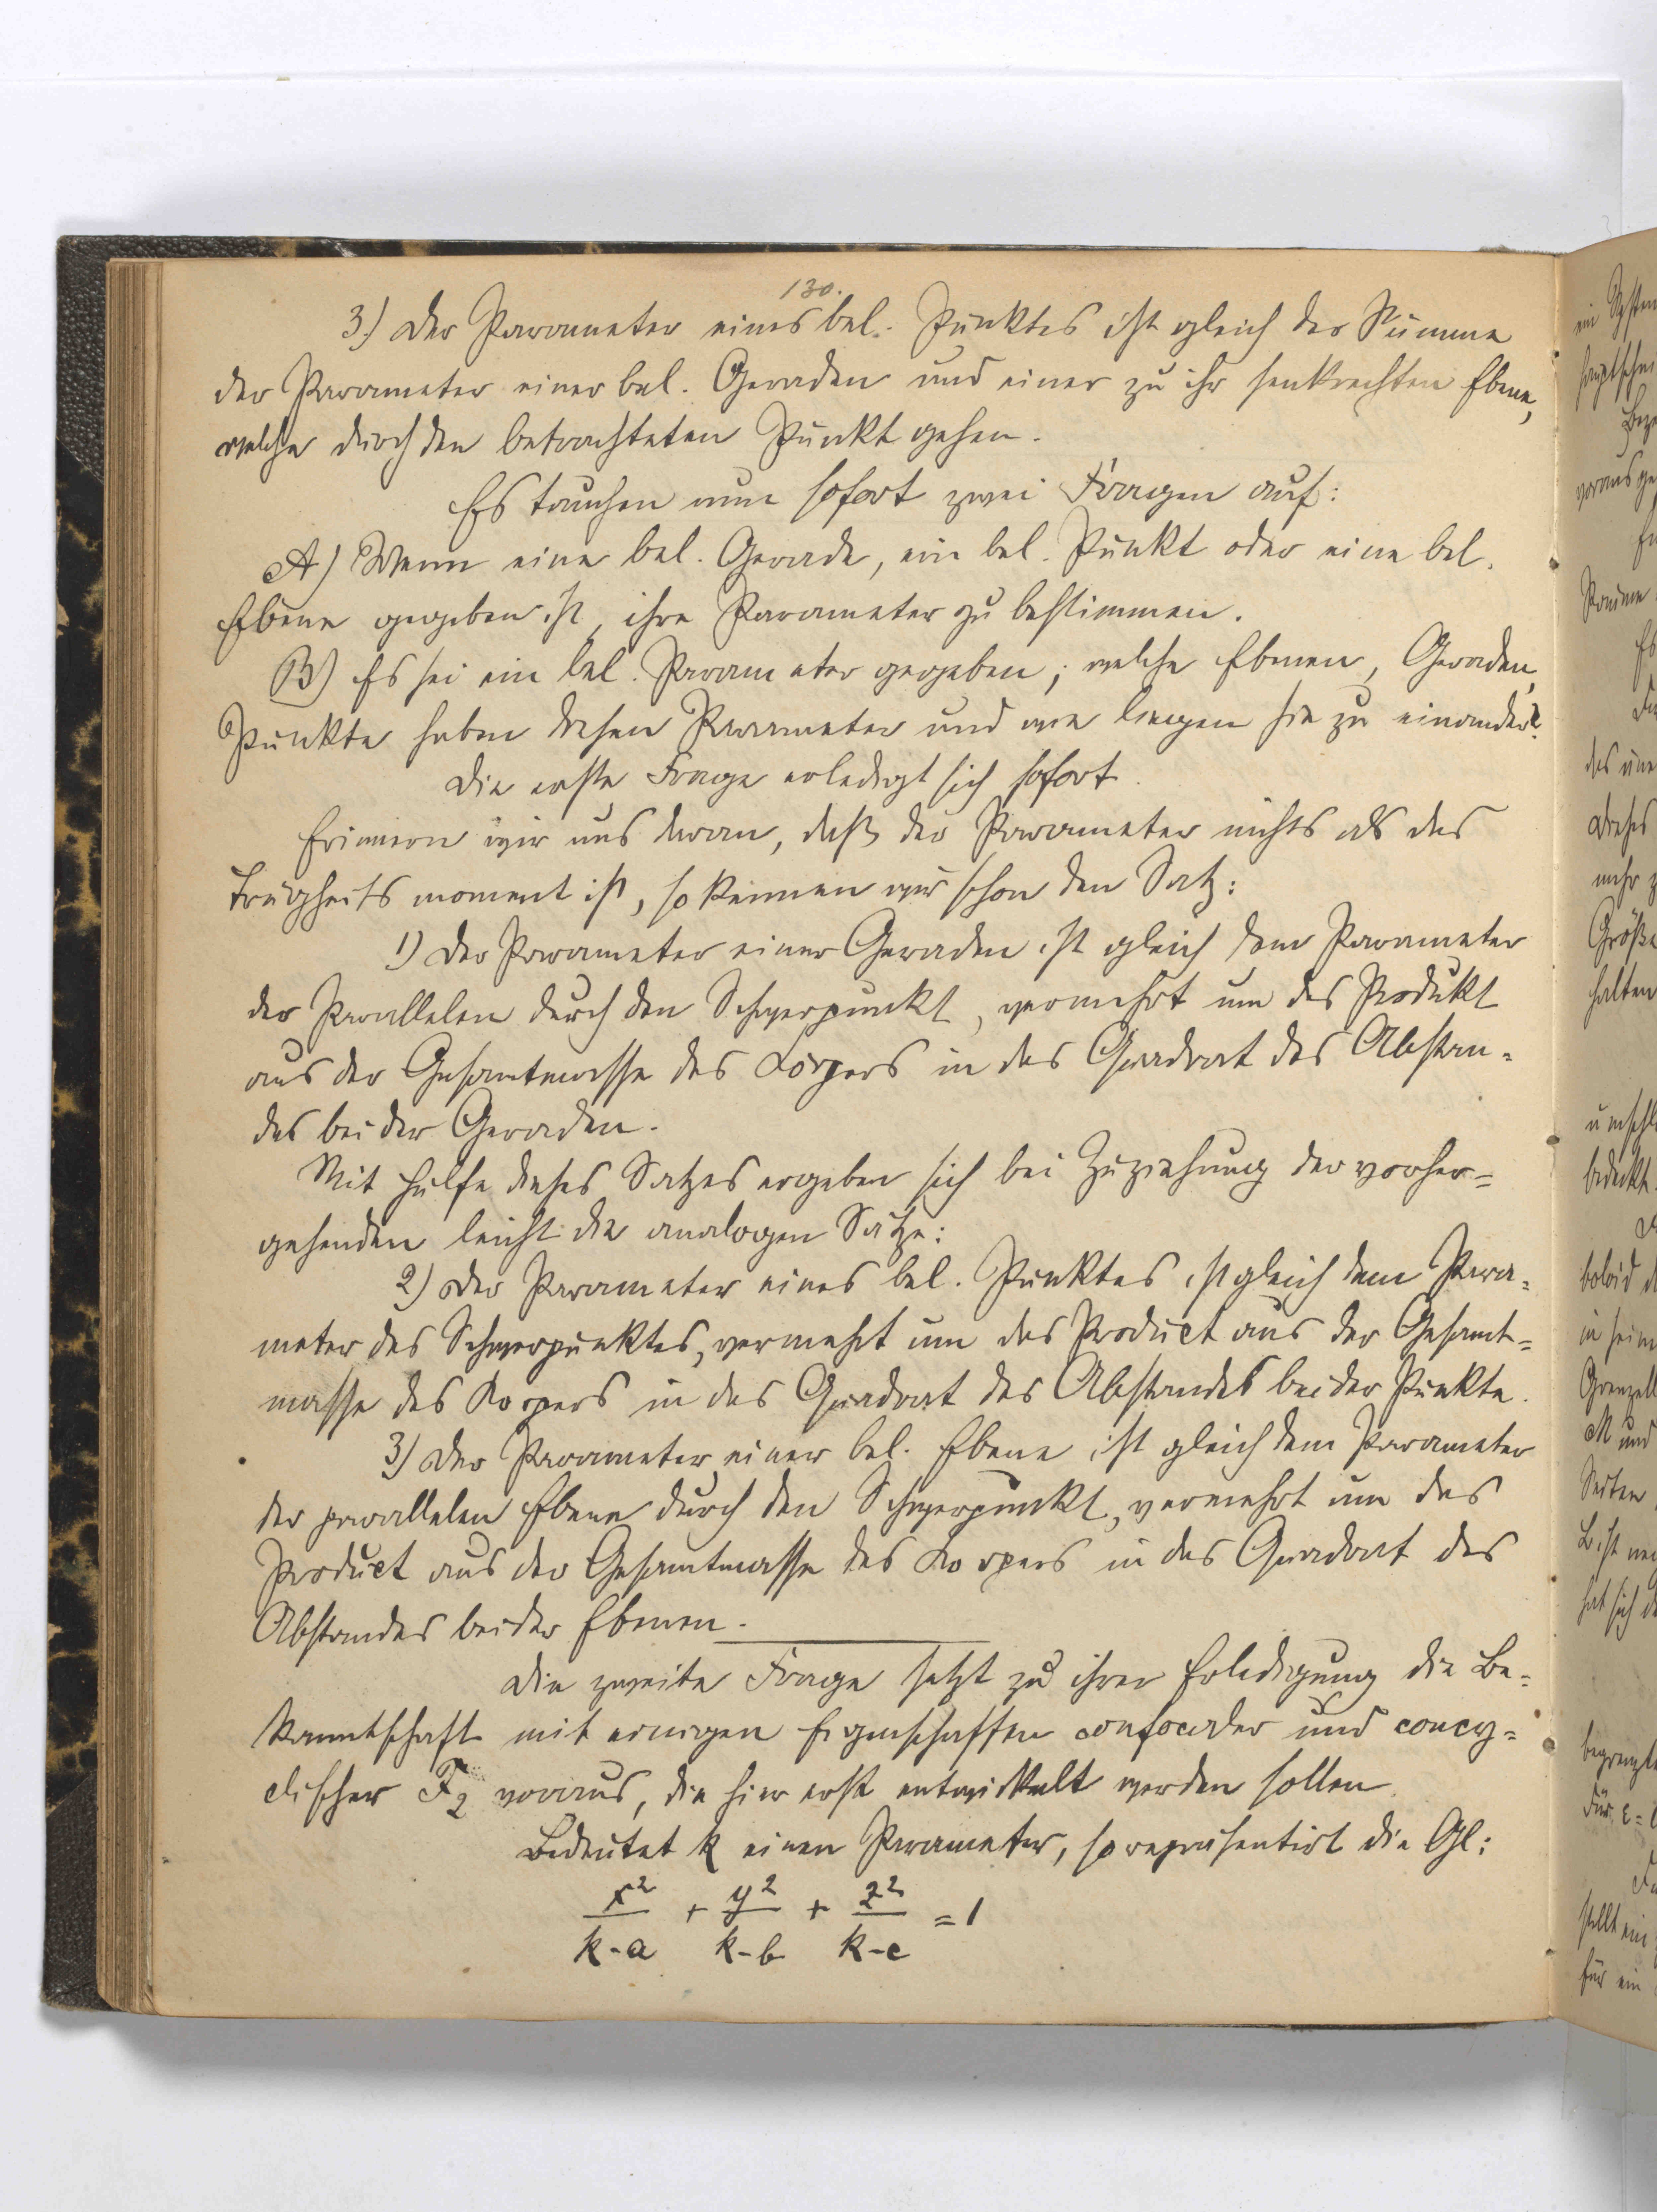 130.
3.) Der Parameter eines bel. Punktes ist gleich der Summe
der Parameter einer bel. Geraden und einer zu ihr senkrechten Ebene,
welche durch den betrachteten Punkt gehen.
Es tauchen nun sofort zwei Fragen auf:
A) Wenn eine bel. Gerade, ein bel. Punkt oder eine bel.
Ebene gegeben ist, ihre Parameter zu bestimmen.
B) Es sei ein bel. Parameter gegeben; welche Ebenen, Geraden,
Punkte haben diesen Parameter und wie liegen sie zu einander?
Die erste Frage erledigt sich sofort.
Erinnern wir uns daran, daß der Parameter nichts als das
Trägheitsmoment ist, so kennen wir schon den Satz:
1) Der Parameter einer Geraden ist gleich dem Parameter
der Parallelen durch den Schwerpunkt, vermehrt um das Produkt
aus der Gesamtmasse des Körpers in das Quadrat des Abstan-
des beider Geraden.
Mit Hülfe dieses Satzes ergeben sich bei Zuziehung der vorher=
gehenden leicht die analogen Sätze:
2) Der Parameter eines bel. Punktes ist gleich dem Para-
meter des Schwerpunktes, vermehrt um das Product aus der Gesamt=
masse des Körpers in das Quadrat des Abstandes beider Punkte.
3) Der Parameter einer bel. Ebene ist gleich dem Parameter
der parallelen Ebene durch den Schwerpunkt, vermehrt um das
Product aus der Gesamtmasse des Körpers in das Quadrat des
Abstandes beider Ebenen.
Die zweite Frage setzt zu ihrer Erledigung die Be-
kanntschaft mit einigen Eigenschaften confocaler und concy=
clischer F₂ voraus, die hier erst entwickelt werden sollen.
Bedeutet k einen Parameter, so repräsentirt die Gl:
x²/(k-a) + y²/(k-b) + z²/(k-c) = 1